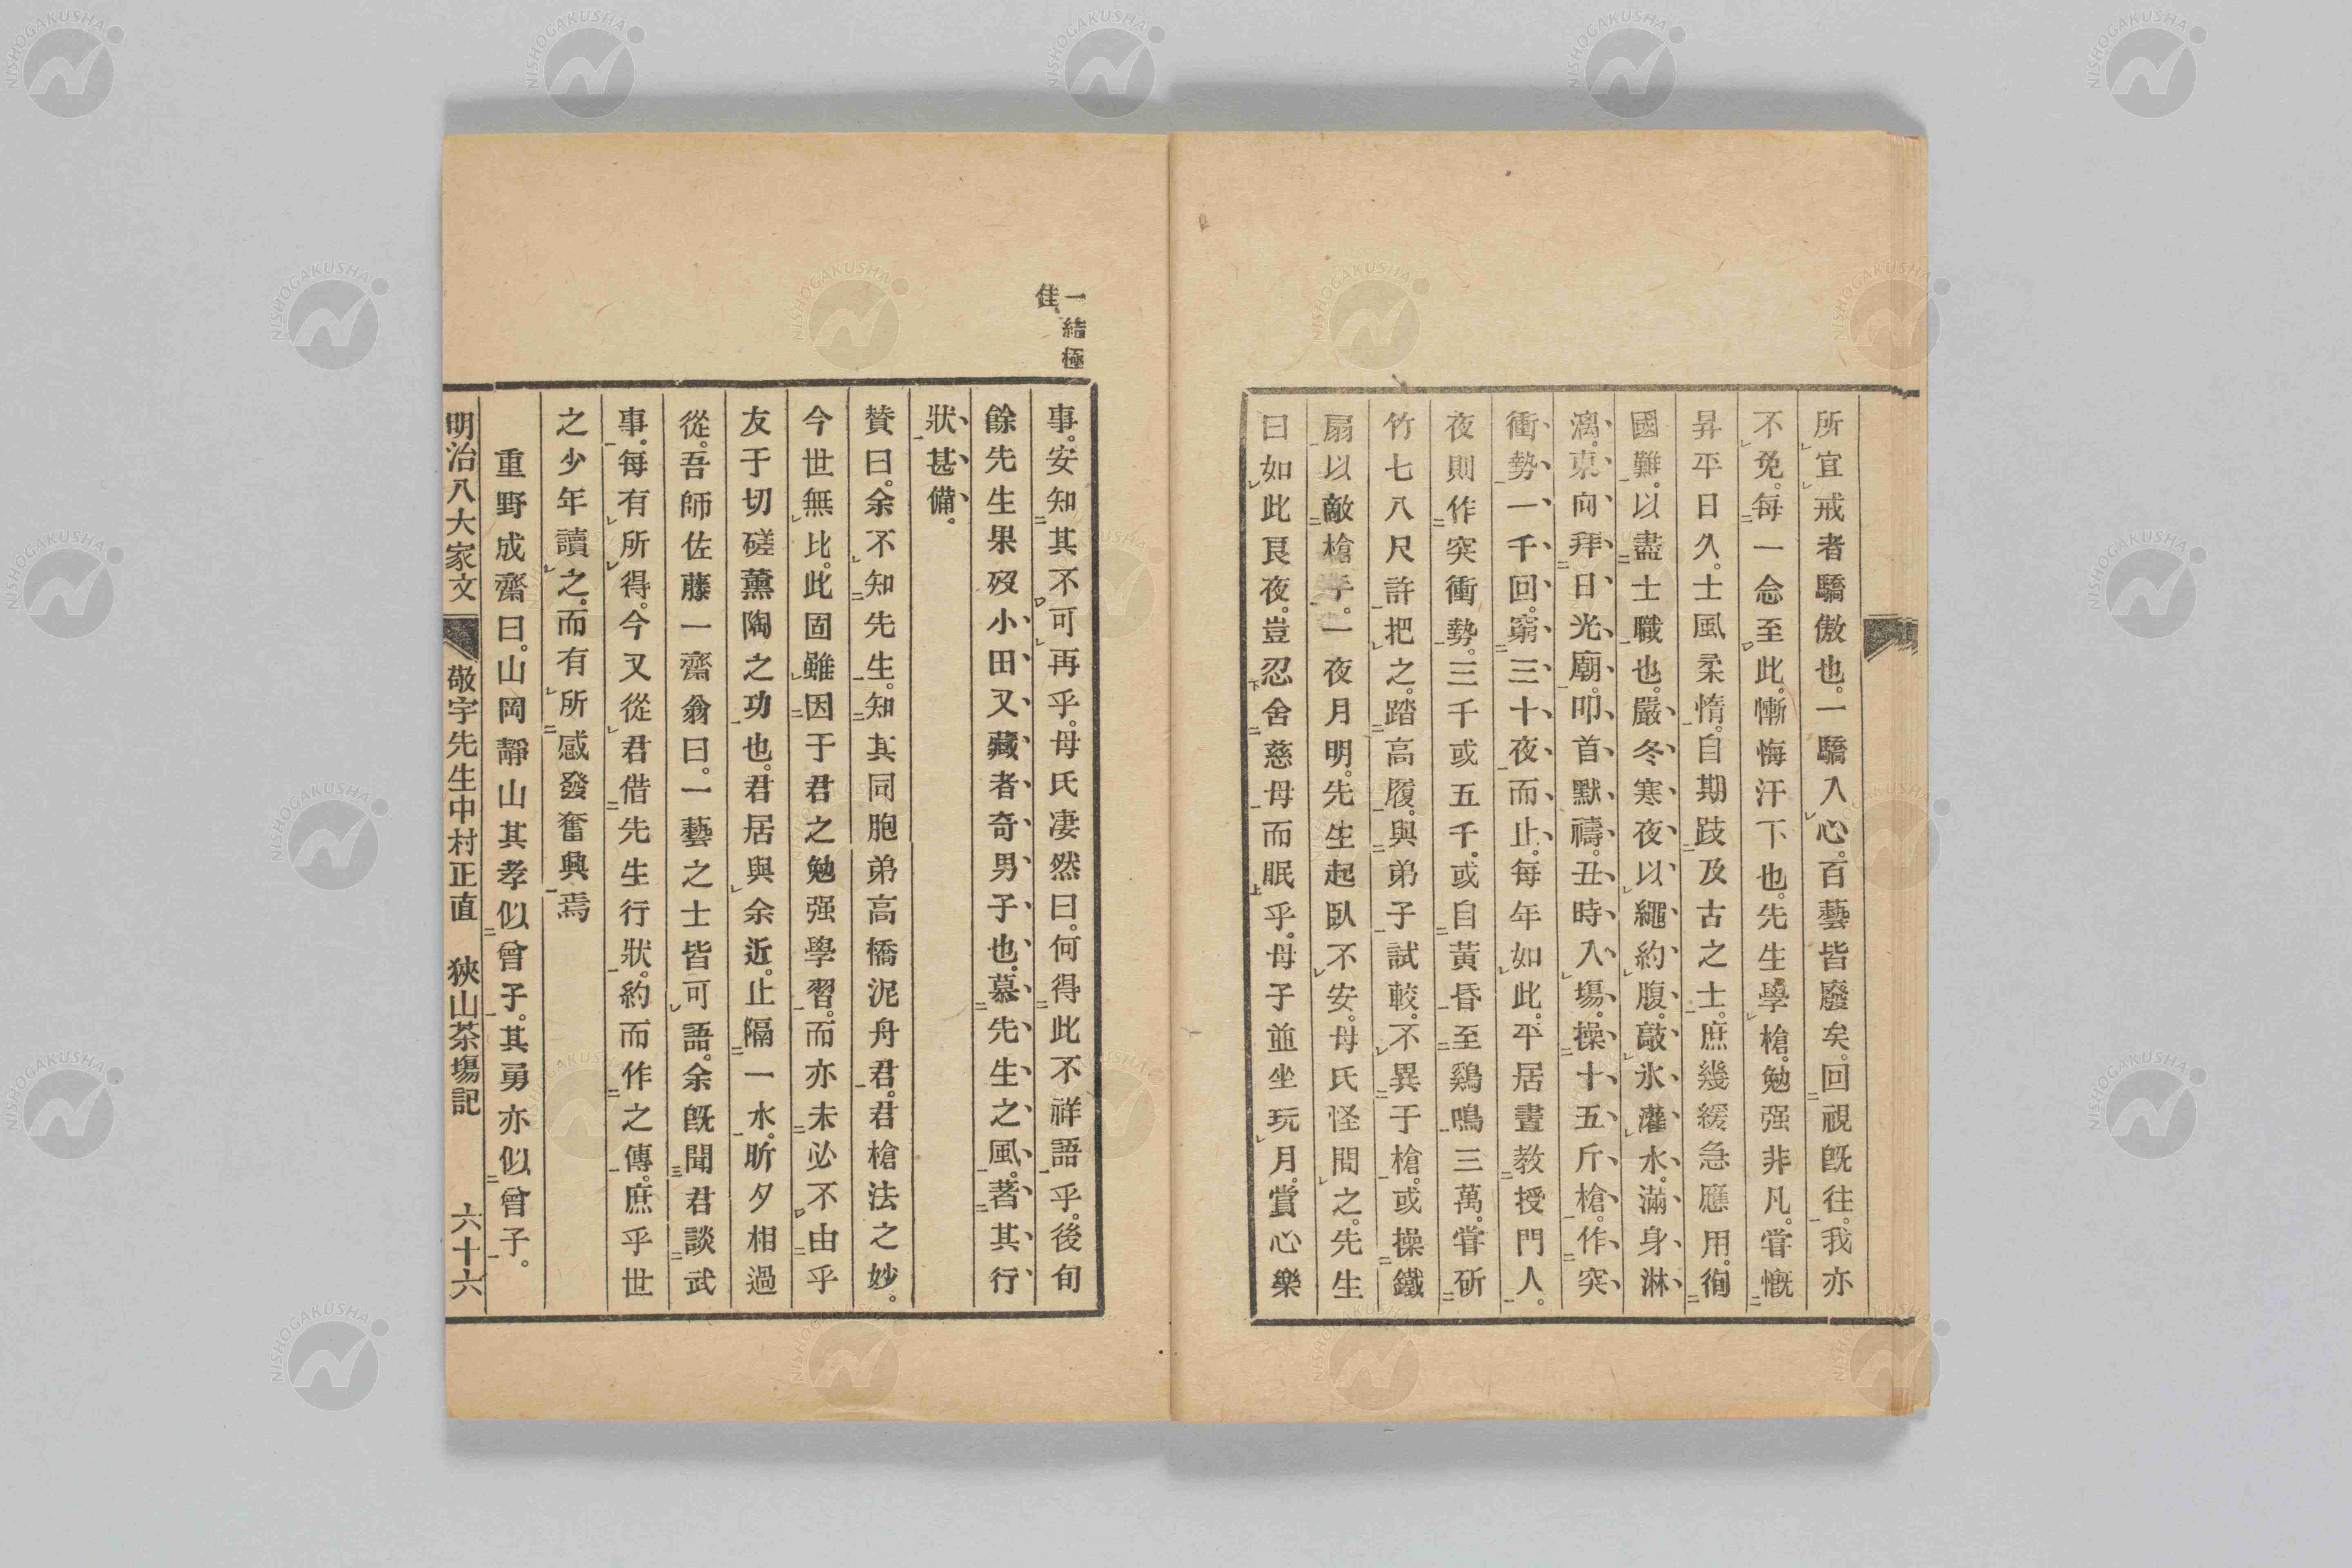 所宜戒者驕傲也。一驕入心。百藝皆廢矣。回視既往。我亦
不免。每一念至此。慚悔汗下也。先生學槍。勉强非凡。嘗慨
昇平日久。士風柔惰。自期跂及古之士。庶幾緩急應用。徇
國難。以盡士職也。嚴冬寒夜以繩約腹。敲氷灌水。滿身淋
漓。東向拜日光廟。叩首默禱。丑時入塲。操十五斤槍。作突
衝勢一千回。窮三十夜而止。每年如此。平居晝教授門人。
夜則作突衝勢。三千或五千。或自黃昏至鷄鳴三萬。嘗斫
竹七八尺許把之。踏高履。與弟子試較。不異于槍。或操鐵
扇以敵槍手。一夜月明。先生起臥不安。母氏怪問之。先生
曰如此良夜。豈忍舍慈母而眠乎。母子並坐玩月。賞心樂
一結極
佳。
事。安知其不可再乎。母氏凄然曰。何得此不祥語乎。後旬
餘先生果歿小田又藏者奇男子也。慕先生之風。著其行
狀甚備。
贊曰。余不知先生。知其同胞弟高橋泥舟君。君槍法之妙。
今世無比。此固雖因于君之勉强學習。而亦未必不由乎
友于切磋薰陶之功也。君居與余近。止隔一水。昕夕相過
從。吾師佐藤一齋翁曰。一藝之士皆可語。余既聞君談武
事。每有所得。今又從君借先生行狀。約而作之傳。庶乎世
之少年讀之。而有所感發奮興焉
重野成齋曰。山岡靜山其孝似曾子。其勇亦似曾子。
明治八大家文 敬宇先生中村正直 狹山茶塲記 六十六
NISHOGAKUSHA